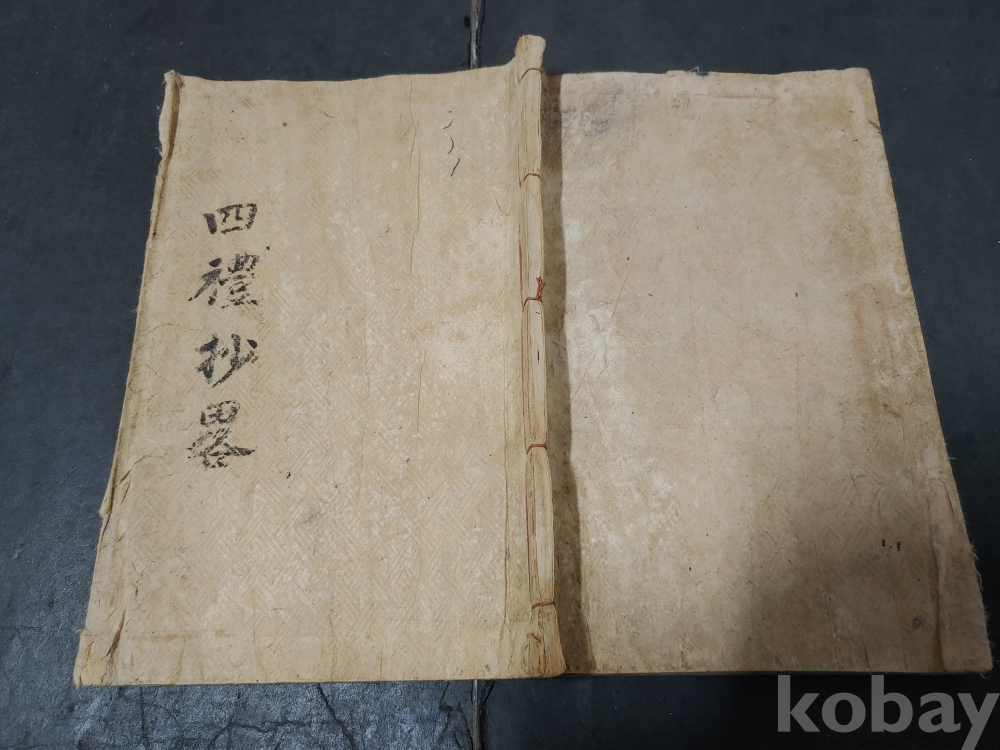 四禮抄畧
kobay